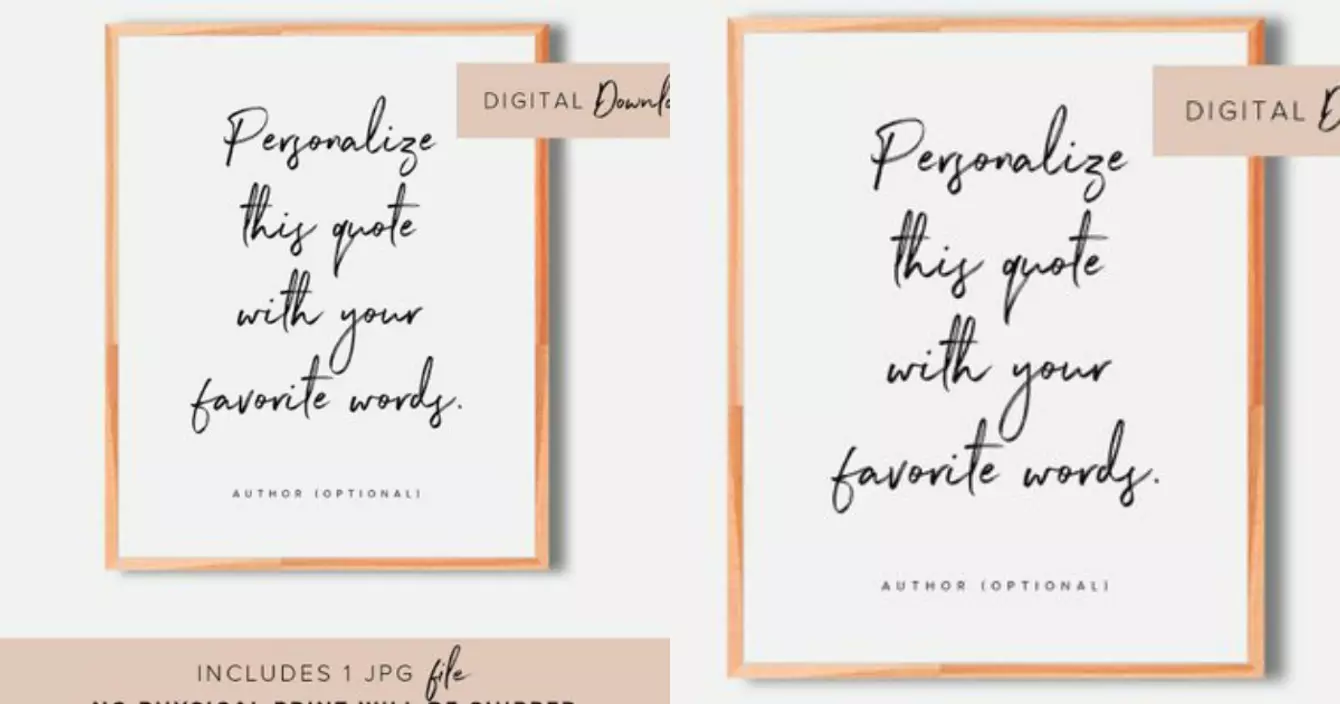 DIGITAL
Personalize
this quote
with your
favorite words.
AUTHOR (OPTIONAL)
INCLUDES 1 JPG file
DIGITAL
Personalize
this quote
with your
favorite words.
AUTHOR (OPTIONAL)